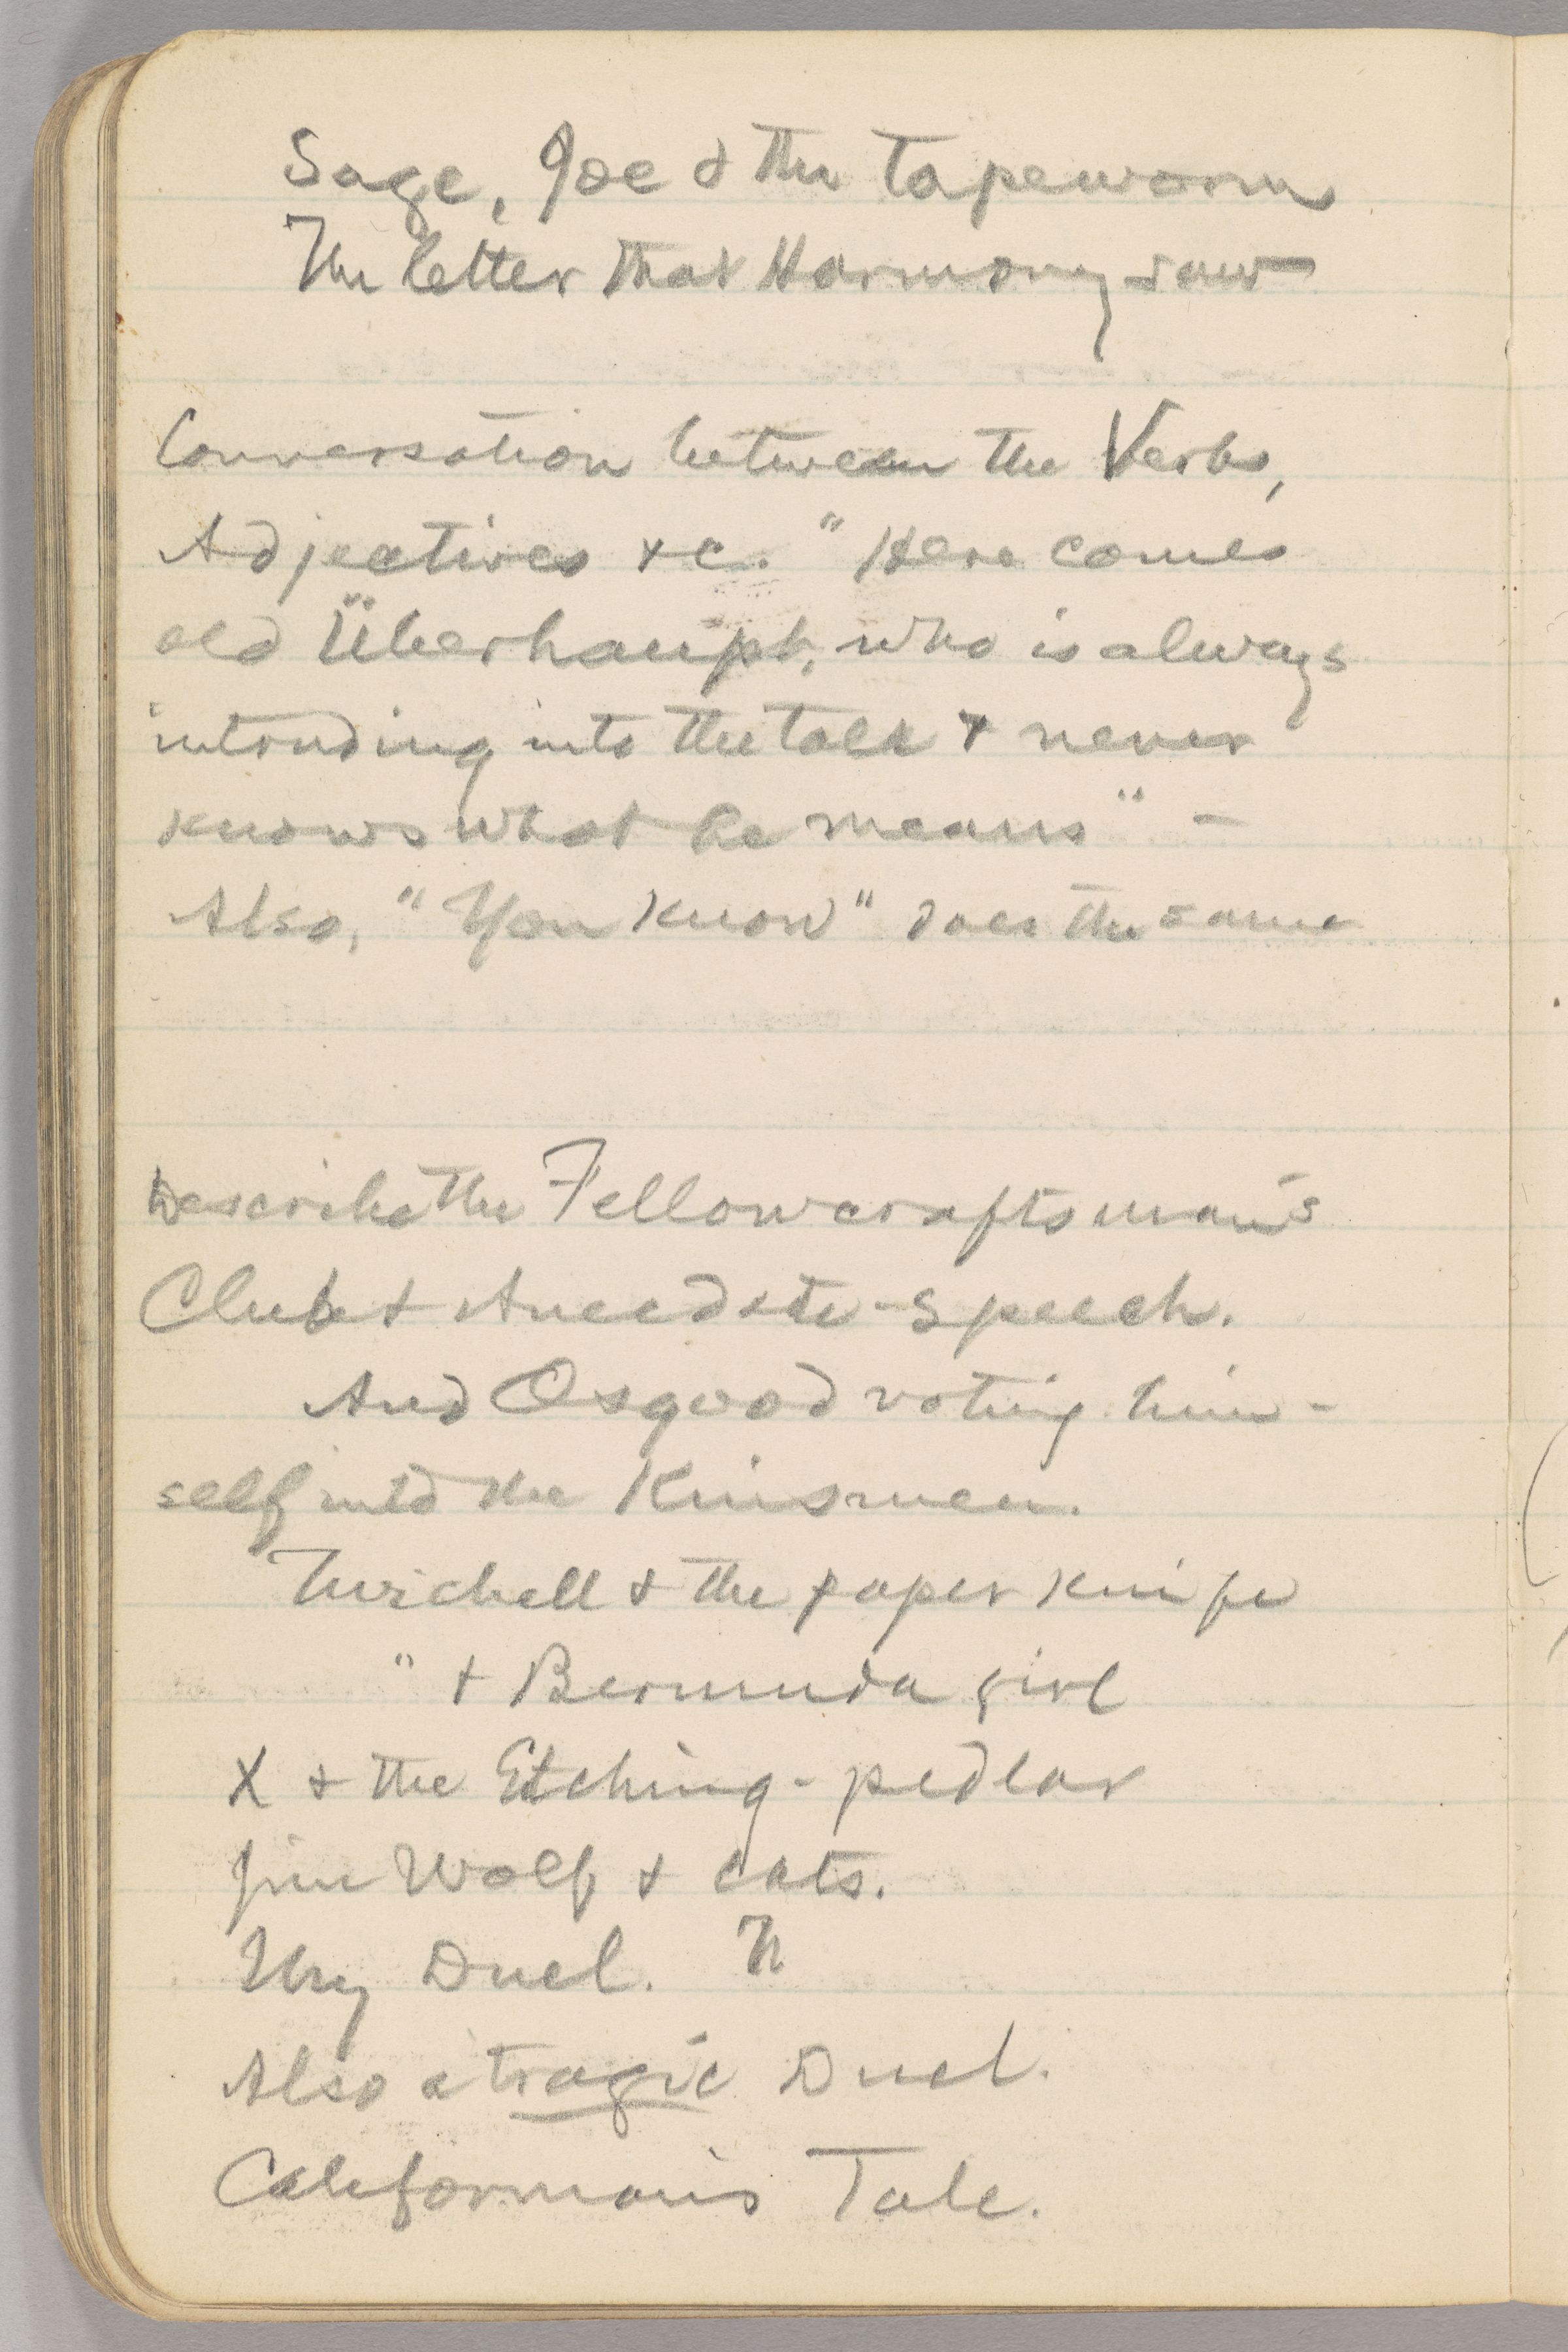 Sage, Joe & the tapeworm
The letter that Harmony saw
Conversation between the Verbs,
Adjectives &c. "Here comes
old Überhaupt, who is always
intruding into the talk & never
knows what he means" —
Also, "You know" does the same
Describe the Fellowcraftsman's
Club & Anecdote-speech.
And Osgood voting him-
self into the Kinsmen.
Twichell & the paper knife
" & Bermuda girl
X & the Etching-pedlar
Jim Wolf & cats.
My Duel.
Also a tragic Duel.
Californian's Tale.